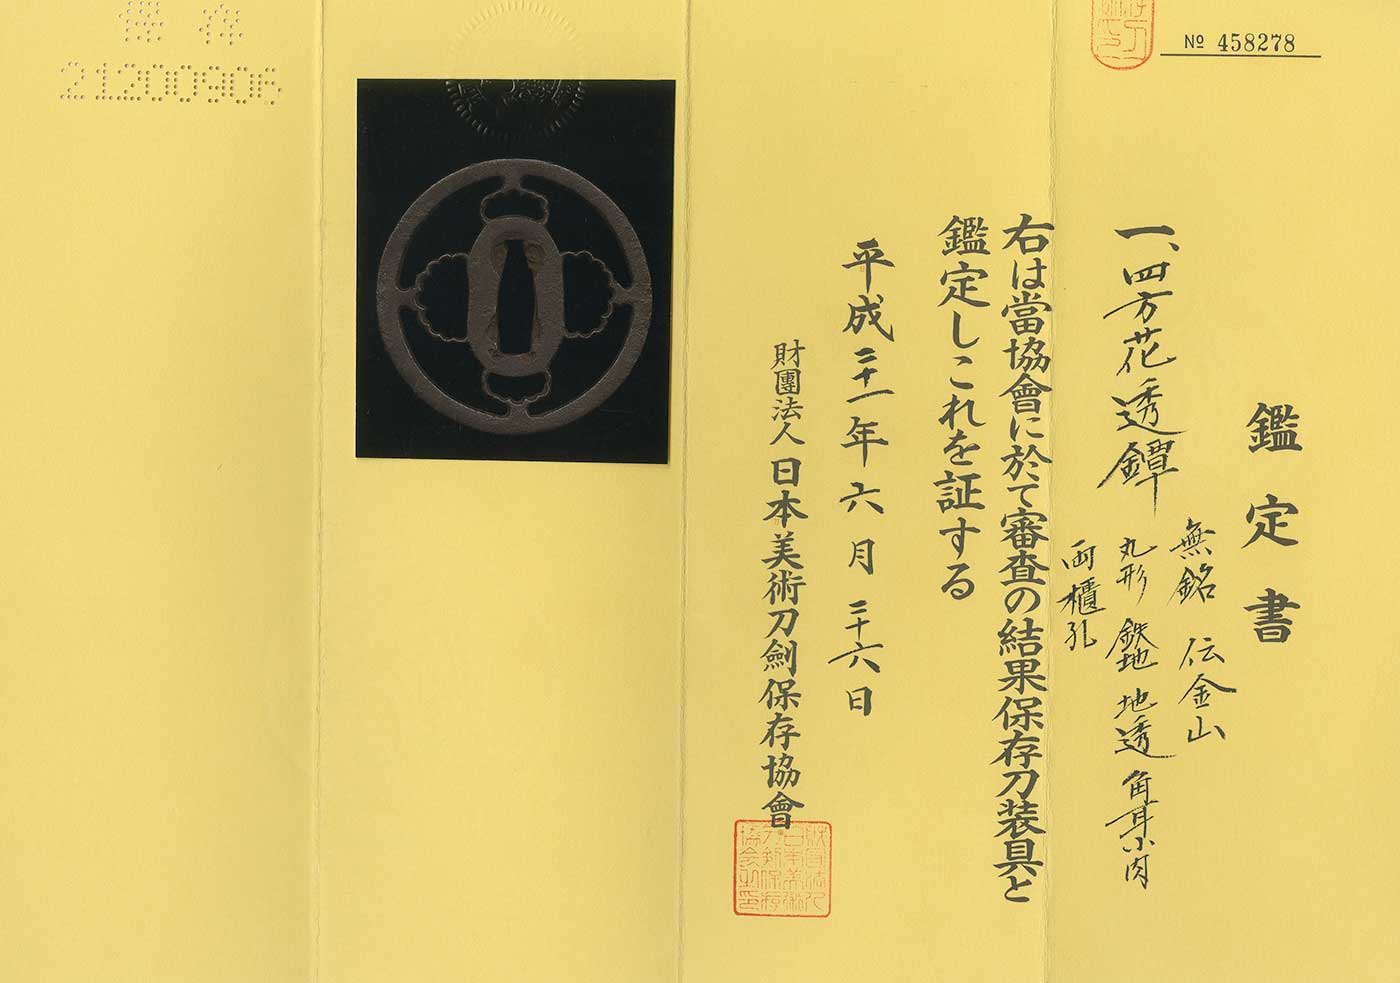 № 458278
鑑定書
一、四方花透鐔
無銘 伝金山
丸形 鉄地 地透 角耳小肉
両櫃孔
右は當協會に於て審査の結果保存刀装具と
鑑定しこれを証する
平成二十一年六月二十六日
財團法人日本美術刀劍保存協會
保存
21200906